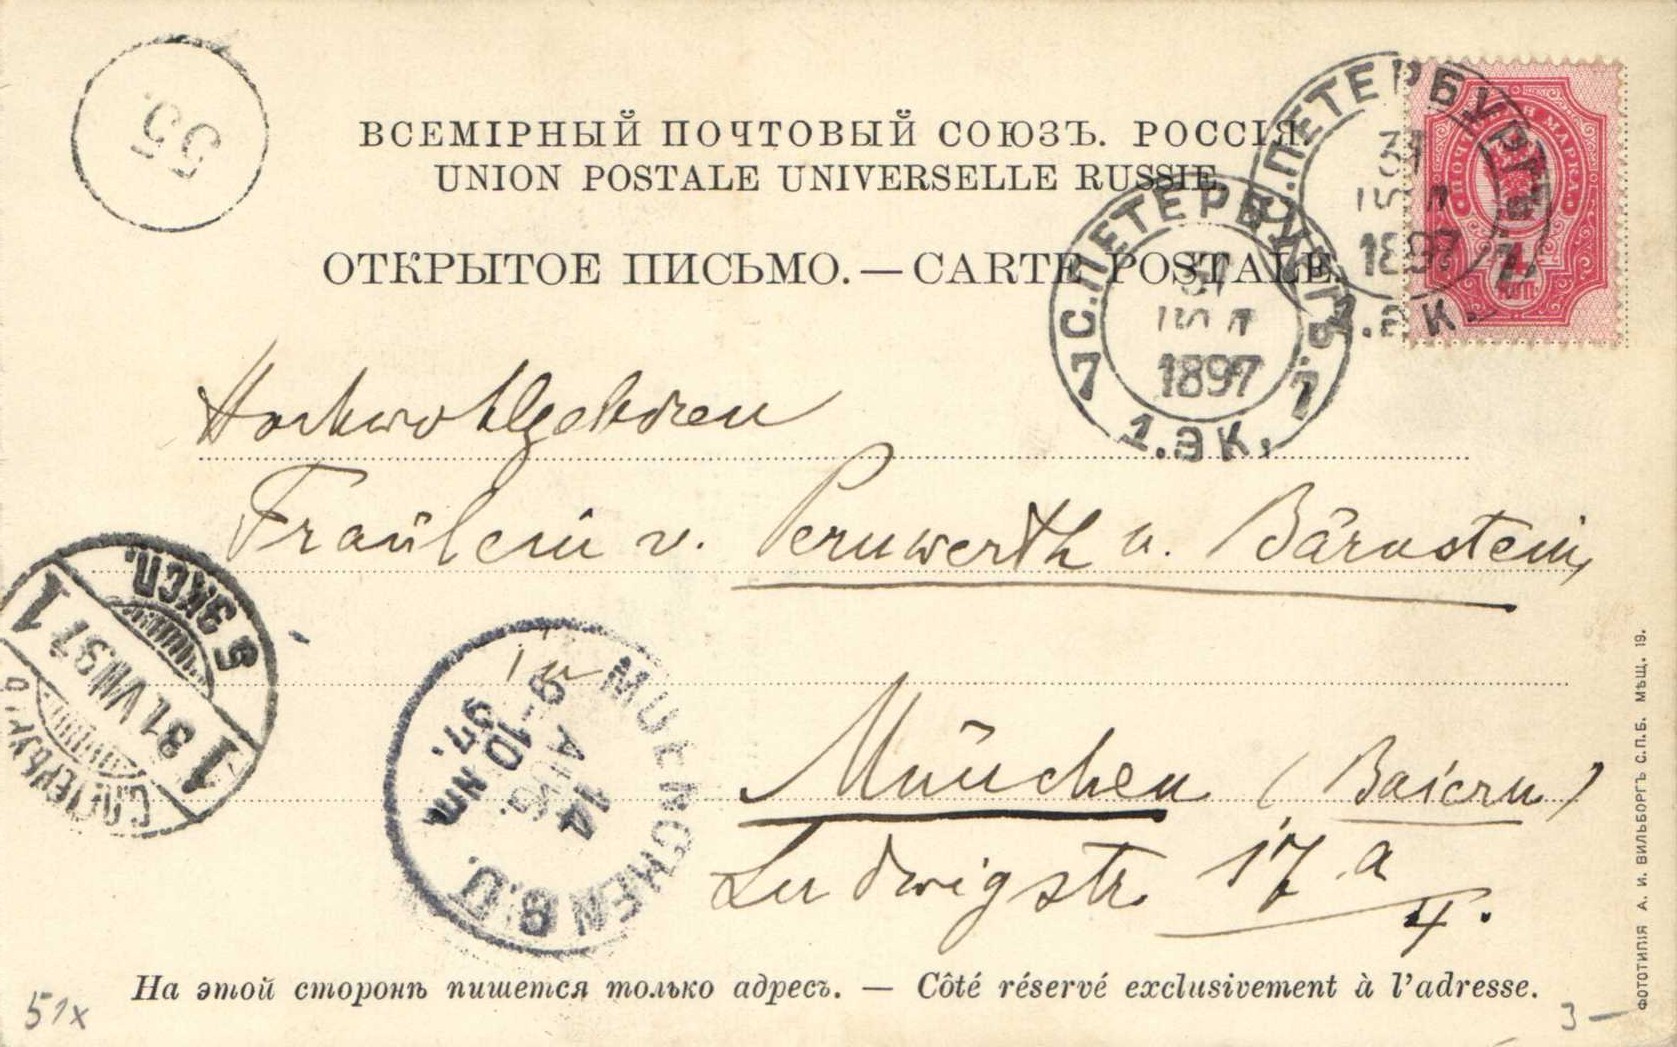 55.
ВСЕМІРНЫЙ ПОЧТОВЫЙ СОЮЗЪ. РОССІЯ.
UNION POSTALE UNIVERSELLE RUSSIE.
ОТКРЫТОЕ ПИСЬМО. — CARTE POSTALE.
С.ПЕТЕРБУРГЪ. 7
31
1897
1.ЭК.
ПОЧТОВАЯ МАРКА
4
КОП.
7 С.ПЕТЕРБУРГЪ. 7
31
1897
1.ЭК.
Hochwohlgeboren
Fräulein v. Pernwerth v. Bärnstein,
in
München (Baiern)
Ludwigstr. 17 a
С.ПЕТЕРБУРГ
1 31 VII 97 1
5 ЭКСП.
MUENCHEN B.O. 8
14
AUG.
9-10 Nm
97.
На этой сторонѣ пишется только адресъ. — Côté réservé exclusivement à l'adresse.
ФОТОТИПІЯ А. И. ВИЛЬБОРГЪ С.П.Б. МѢЩ. 19.
51x
3 —